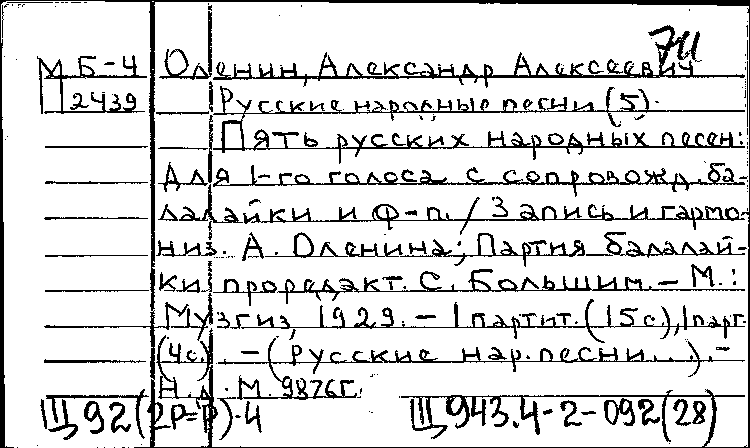 7Ц
М Б-4 Оленин, Александр Алексеевич
П 2439 Русские народные песни (5).
Пять русских народных песен:
Для 1-го голоса с сопровожд. ба-
лалайки и ф-п. / Запись и гармо-
низ. А. Оленина; Партия балалай-
ки проредакт. С. Большим. - М.:
Музгиз, 1929. - 1 партит. (15с.), 1 парт.
(4с.). - (Русские нар. песни...). -
Н.д. М. 9876 Г.
Щ92(2Р=Р)-4 Щ943.4-2-092(28)